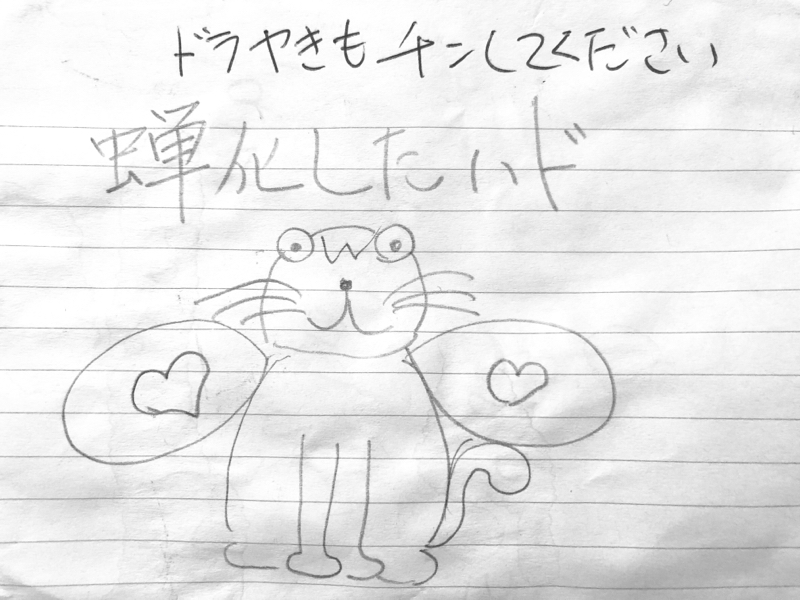 ドラヤきもチンしてください
蝉化したハド